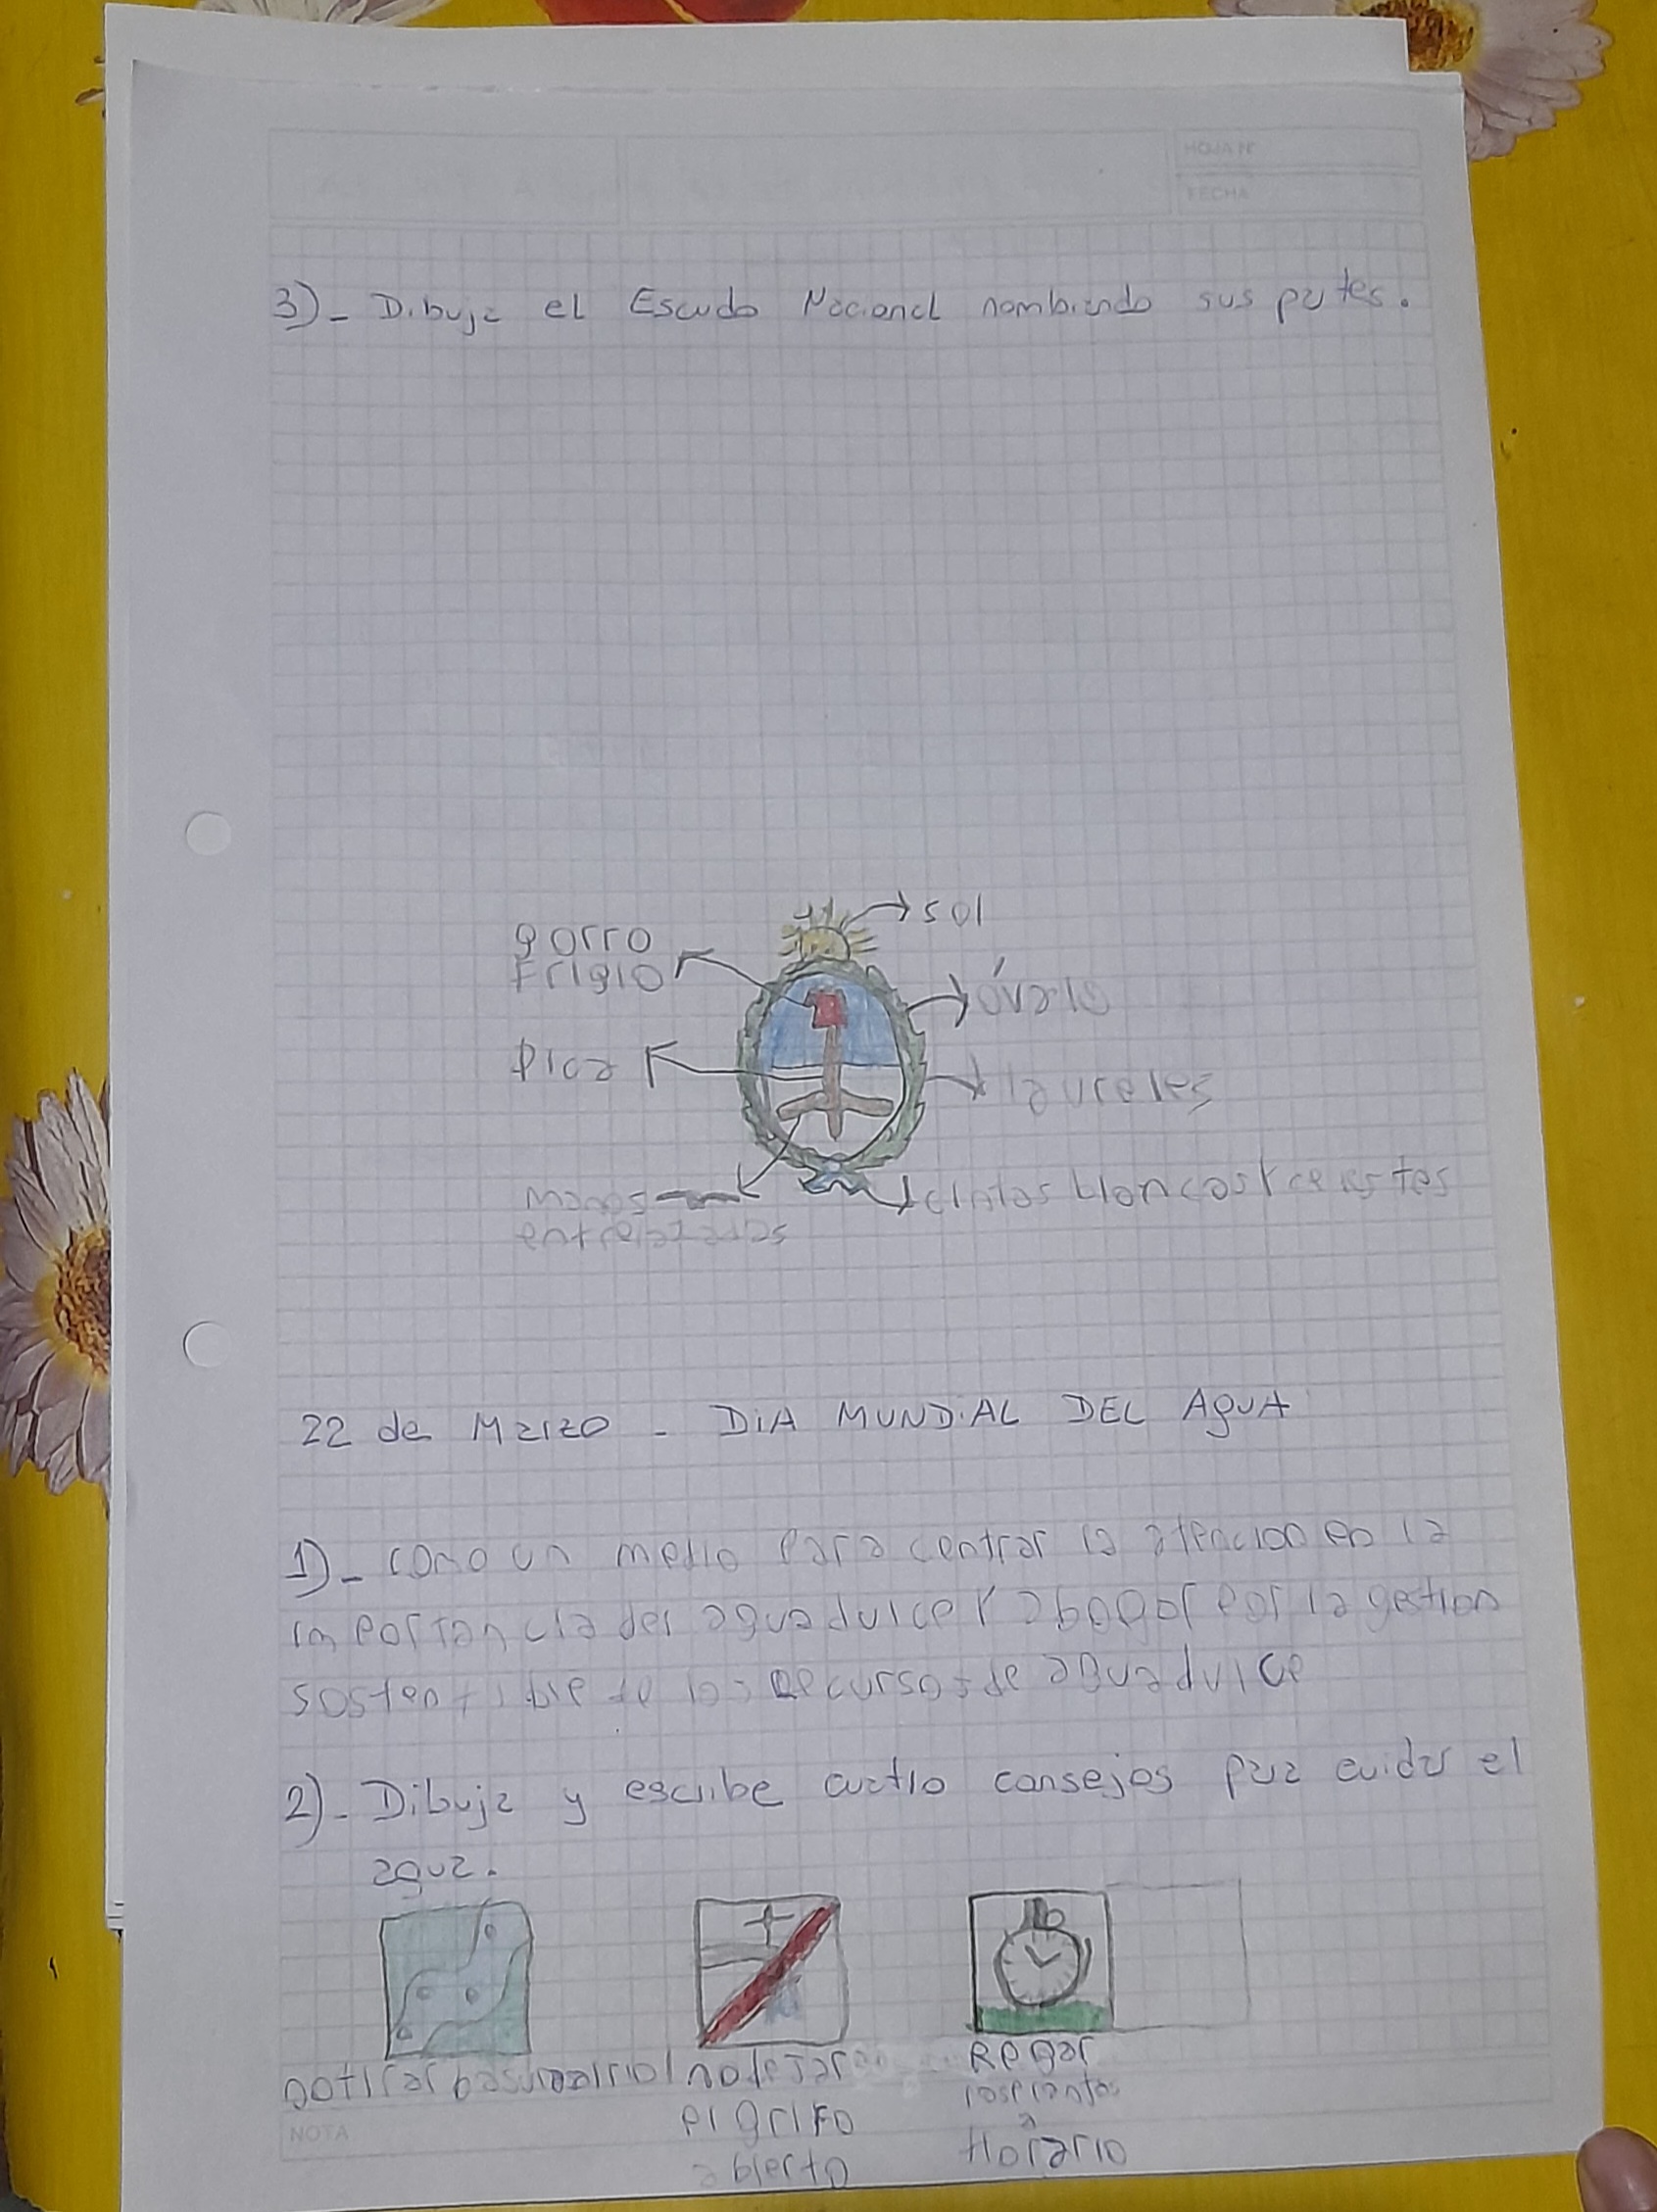 HOJA Nº
FECHA
3)- Dibuja el Escudo Nacional nombrando sus partes.
sol
gorro
frigio
óvalo
pica
laureles
manos
entrelazadas
cintas blancas y celestes
22 de Marzo - DIA MUNDIAL DEL AGUA
1)- como un medio para centrar la atencion en la
importancia del agua dulce y abogar por la gestion
sostentible de los recursos de agua dulce
2)- Dibuja y escribe cuatro consejos para cuidar el
agua.
no tirar basura al rio
no dejar
el grifo
abierto
Regar
las plantas
a
Horario
NOTA